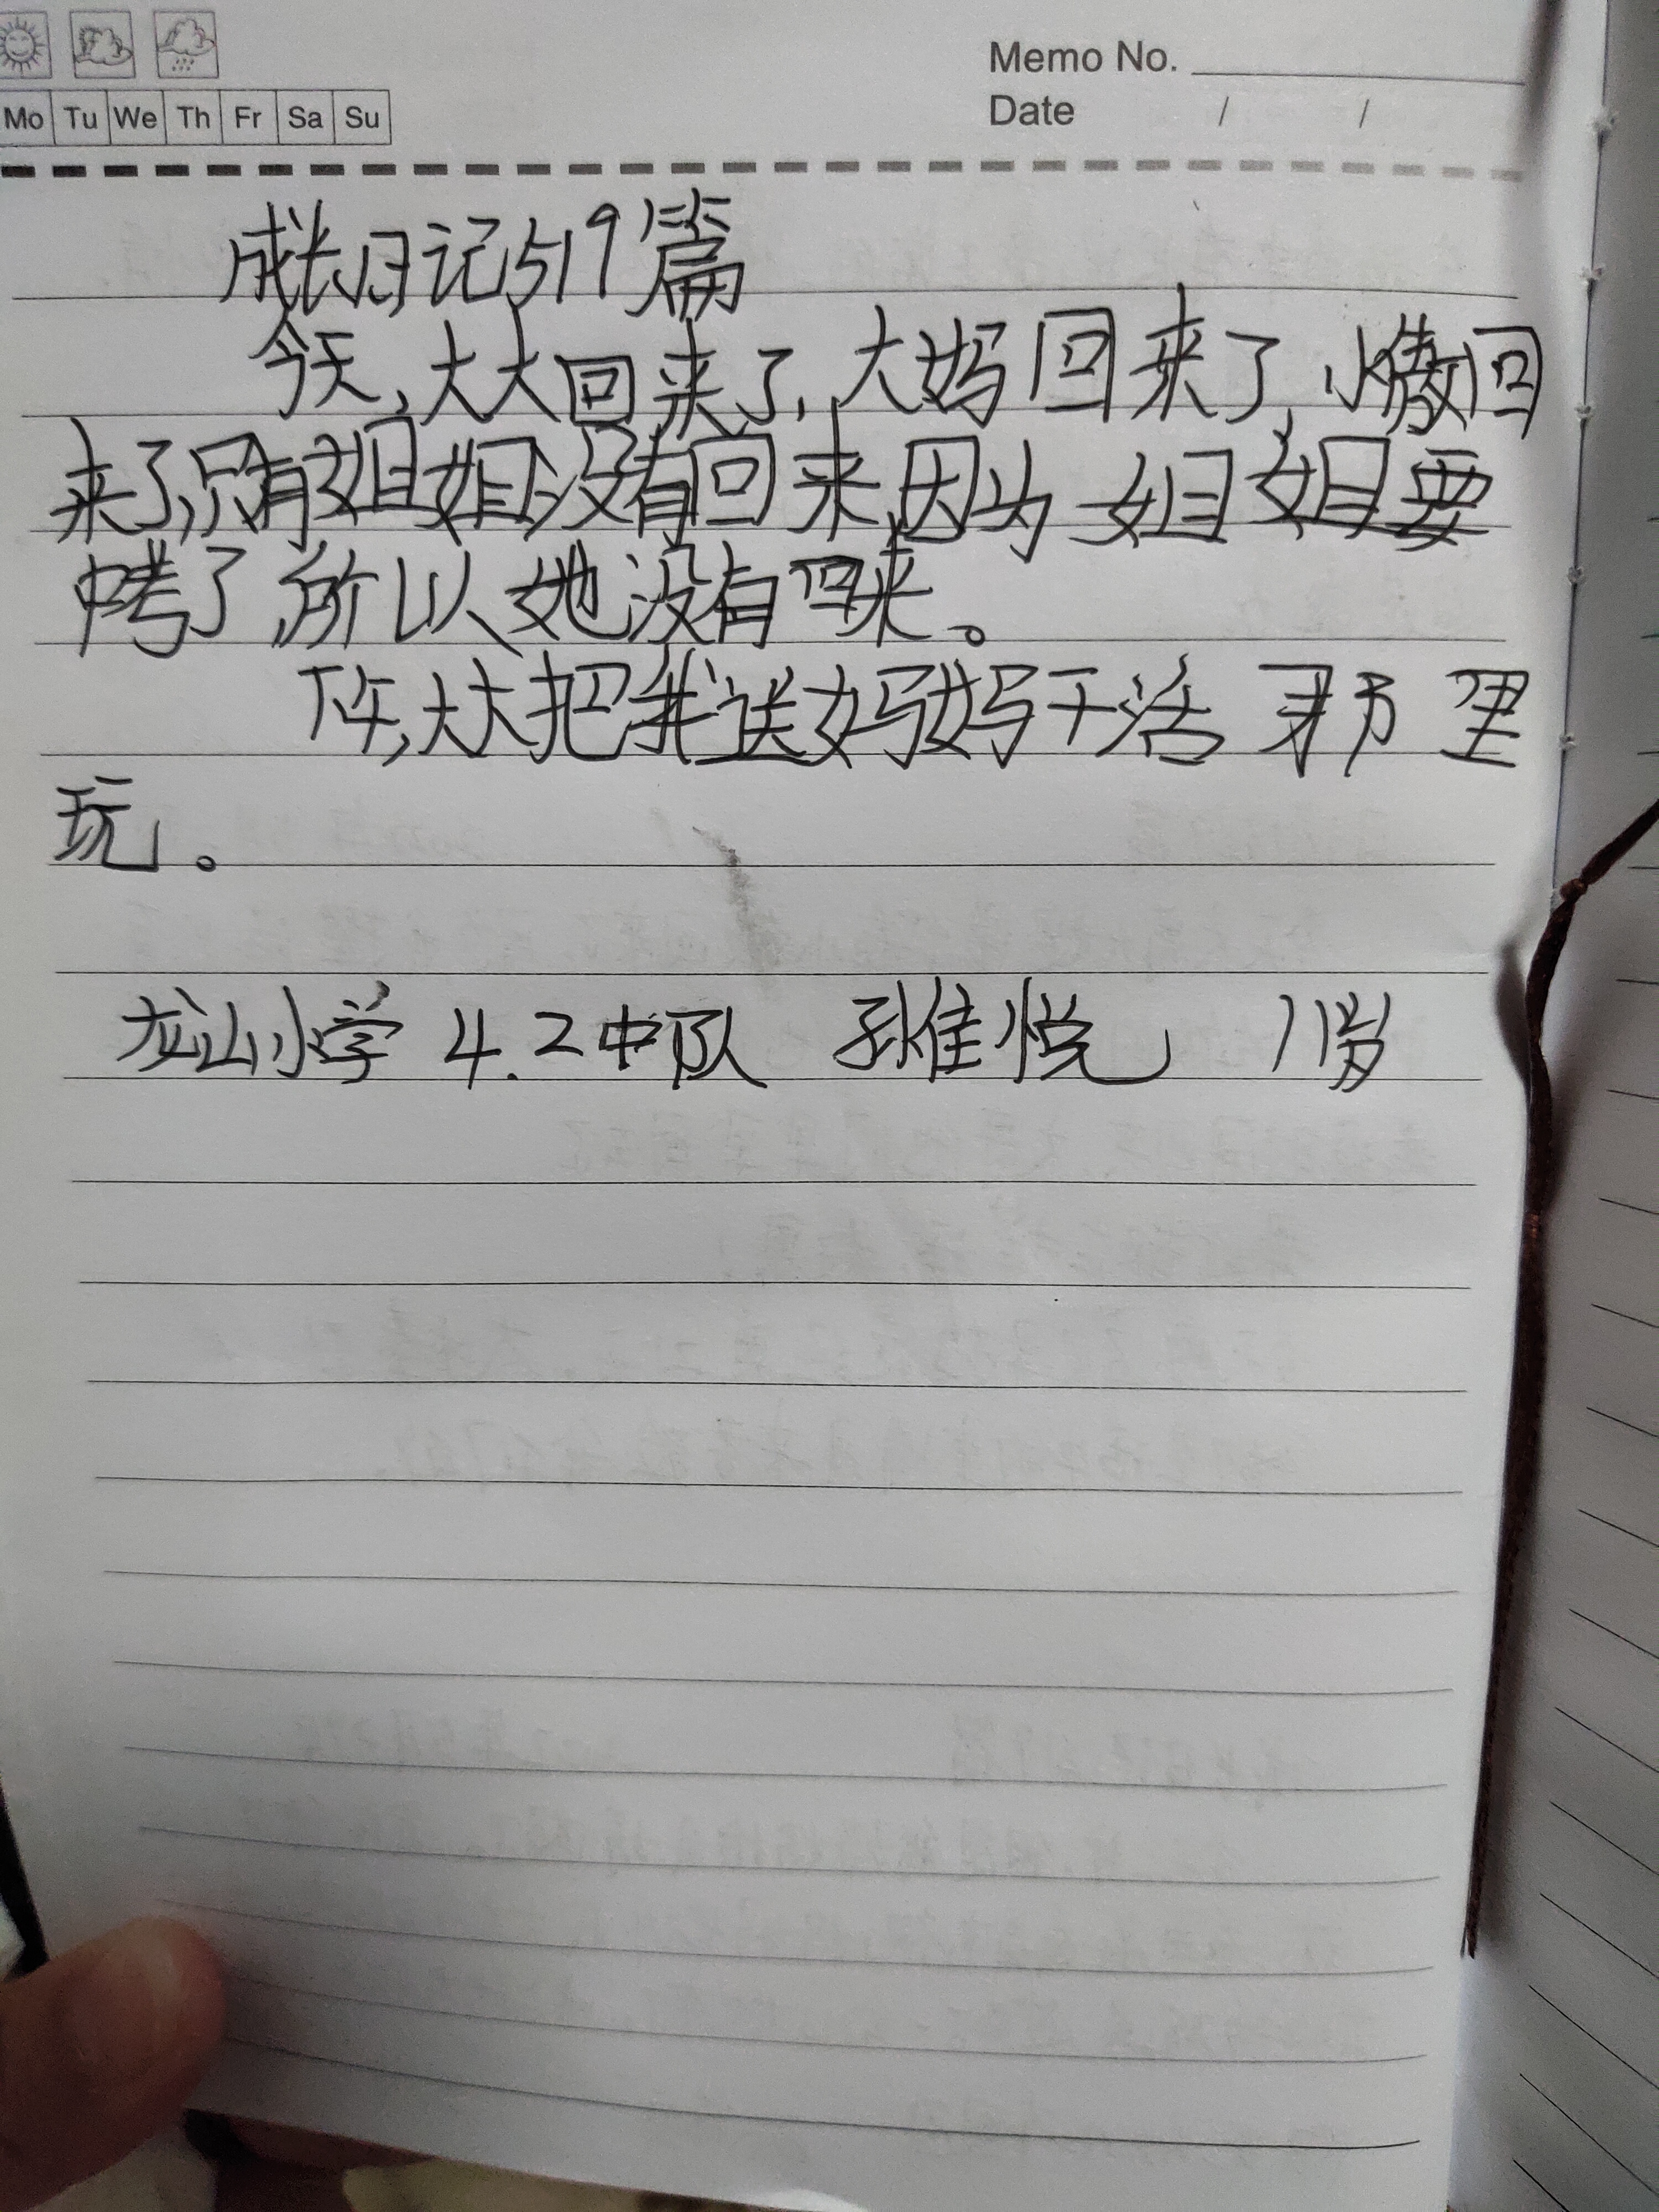 Mo Tu We Th Fr Sa Su
Memo No.
Date / /
成长日记519篇
今天,大大回来了,大妈回来了,小傲回
来了,只有姐姐没有回来,因为姐姐要
中考了,所以她没有回来。
下午,大大把我送妈妈干活那里
玩。
龙山小学 4.2中队 孙佳悦 11岁